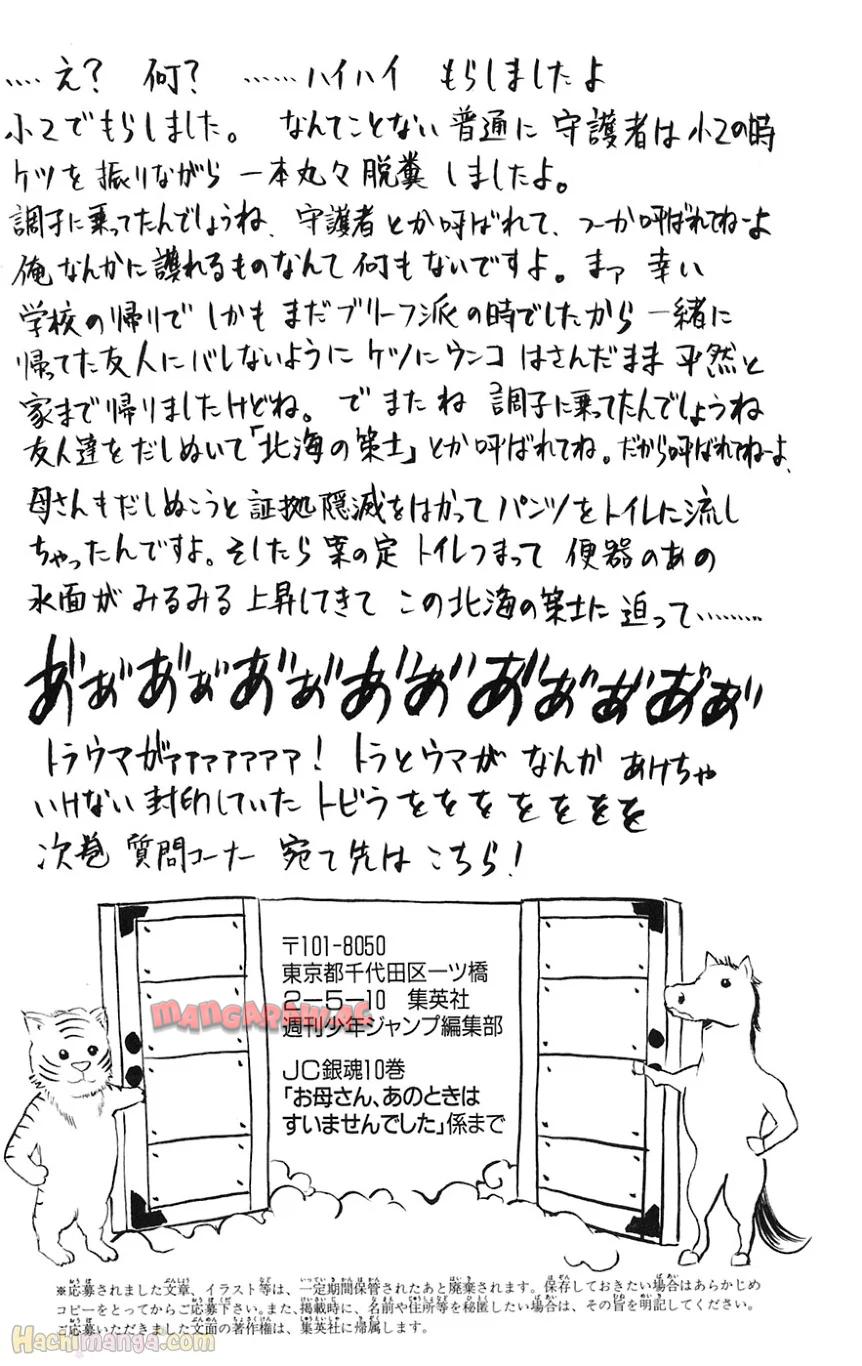 ‥‥え？ 何？ ‥‥‥ハイハイ もらしましたよ
小2でもらしました。 なんてことない普通に 守護者は小2の時
ケツを振りながら 一本丸々脱糞しましたよ。
調子に乗ってたんでしょうね、守護者とか呼ばれて、つーか呼ばれてねーよ
俺なんかに護れるものなんて何もないですよ。まァ 幸い
学校の帰りで しかも まだブリーフ派の時でしたから 一緒に
帰ってた友人にバレないように ケツにウンコ はさんだまま 平然と
家まで帰りましたけどね。 で また ね 調子に乗ってたんでしょうね
友人達をだしぬいて「北海の策士」とか呼ばれてね。だから呼ばれてねーよ、
母さんもだしぬこうと証拠隠滅をはかって パンツをトイレに流し
ちゃったんですよ。そしたら 案の定 トイレつまって 便器のあの
水面が みるみる上昇してきて この北海の策士に 迫って‥‥‥‥
あ゛ぁ゛あ゛ぁ゛あ゛ぁ゛あ゛あ゛あ゛ぁ゛ぁ゛あ゛ぁ゛
トラウマがァァァァァァァ！ トラとウマが なんか あけちゃ
いけない 封印していた トビラををををををを
次巻 質問コーナー 宛て先は こちら！
〒101-8050
東京都千代田区一ツ橋
2－5－10 集英社
週刊少年ジャンプ編集部
MANGARAWAC
JC銀魂10巻
「お母さん、あのときは
すいませんでした」係まで
※応募されました文章、イラスト等は、一定期間保管されたあと廃棄されます。保存しておきたい場合はあらかじめ
コピーをとってからご応募下さい。また、掲載時に、名前や住所等を秘匿したい場合は、その旨を明記してください。
ご応募いただきました文面の著作権は、集英社に帰属します。
Hachimanga.com